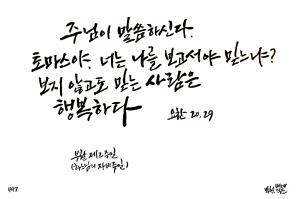 주님이 말씀하신다.
토마스야. 너는 나를 보고서야 믿느냐?
보지 않고도 믿는 사람은
행복하다
요한 20,29
부활 제2주일
(하느님의 자비주일)